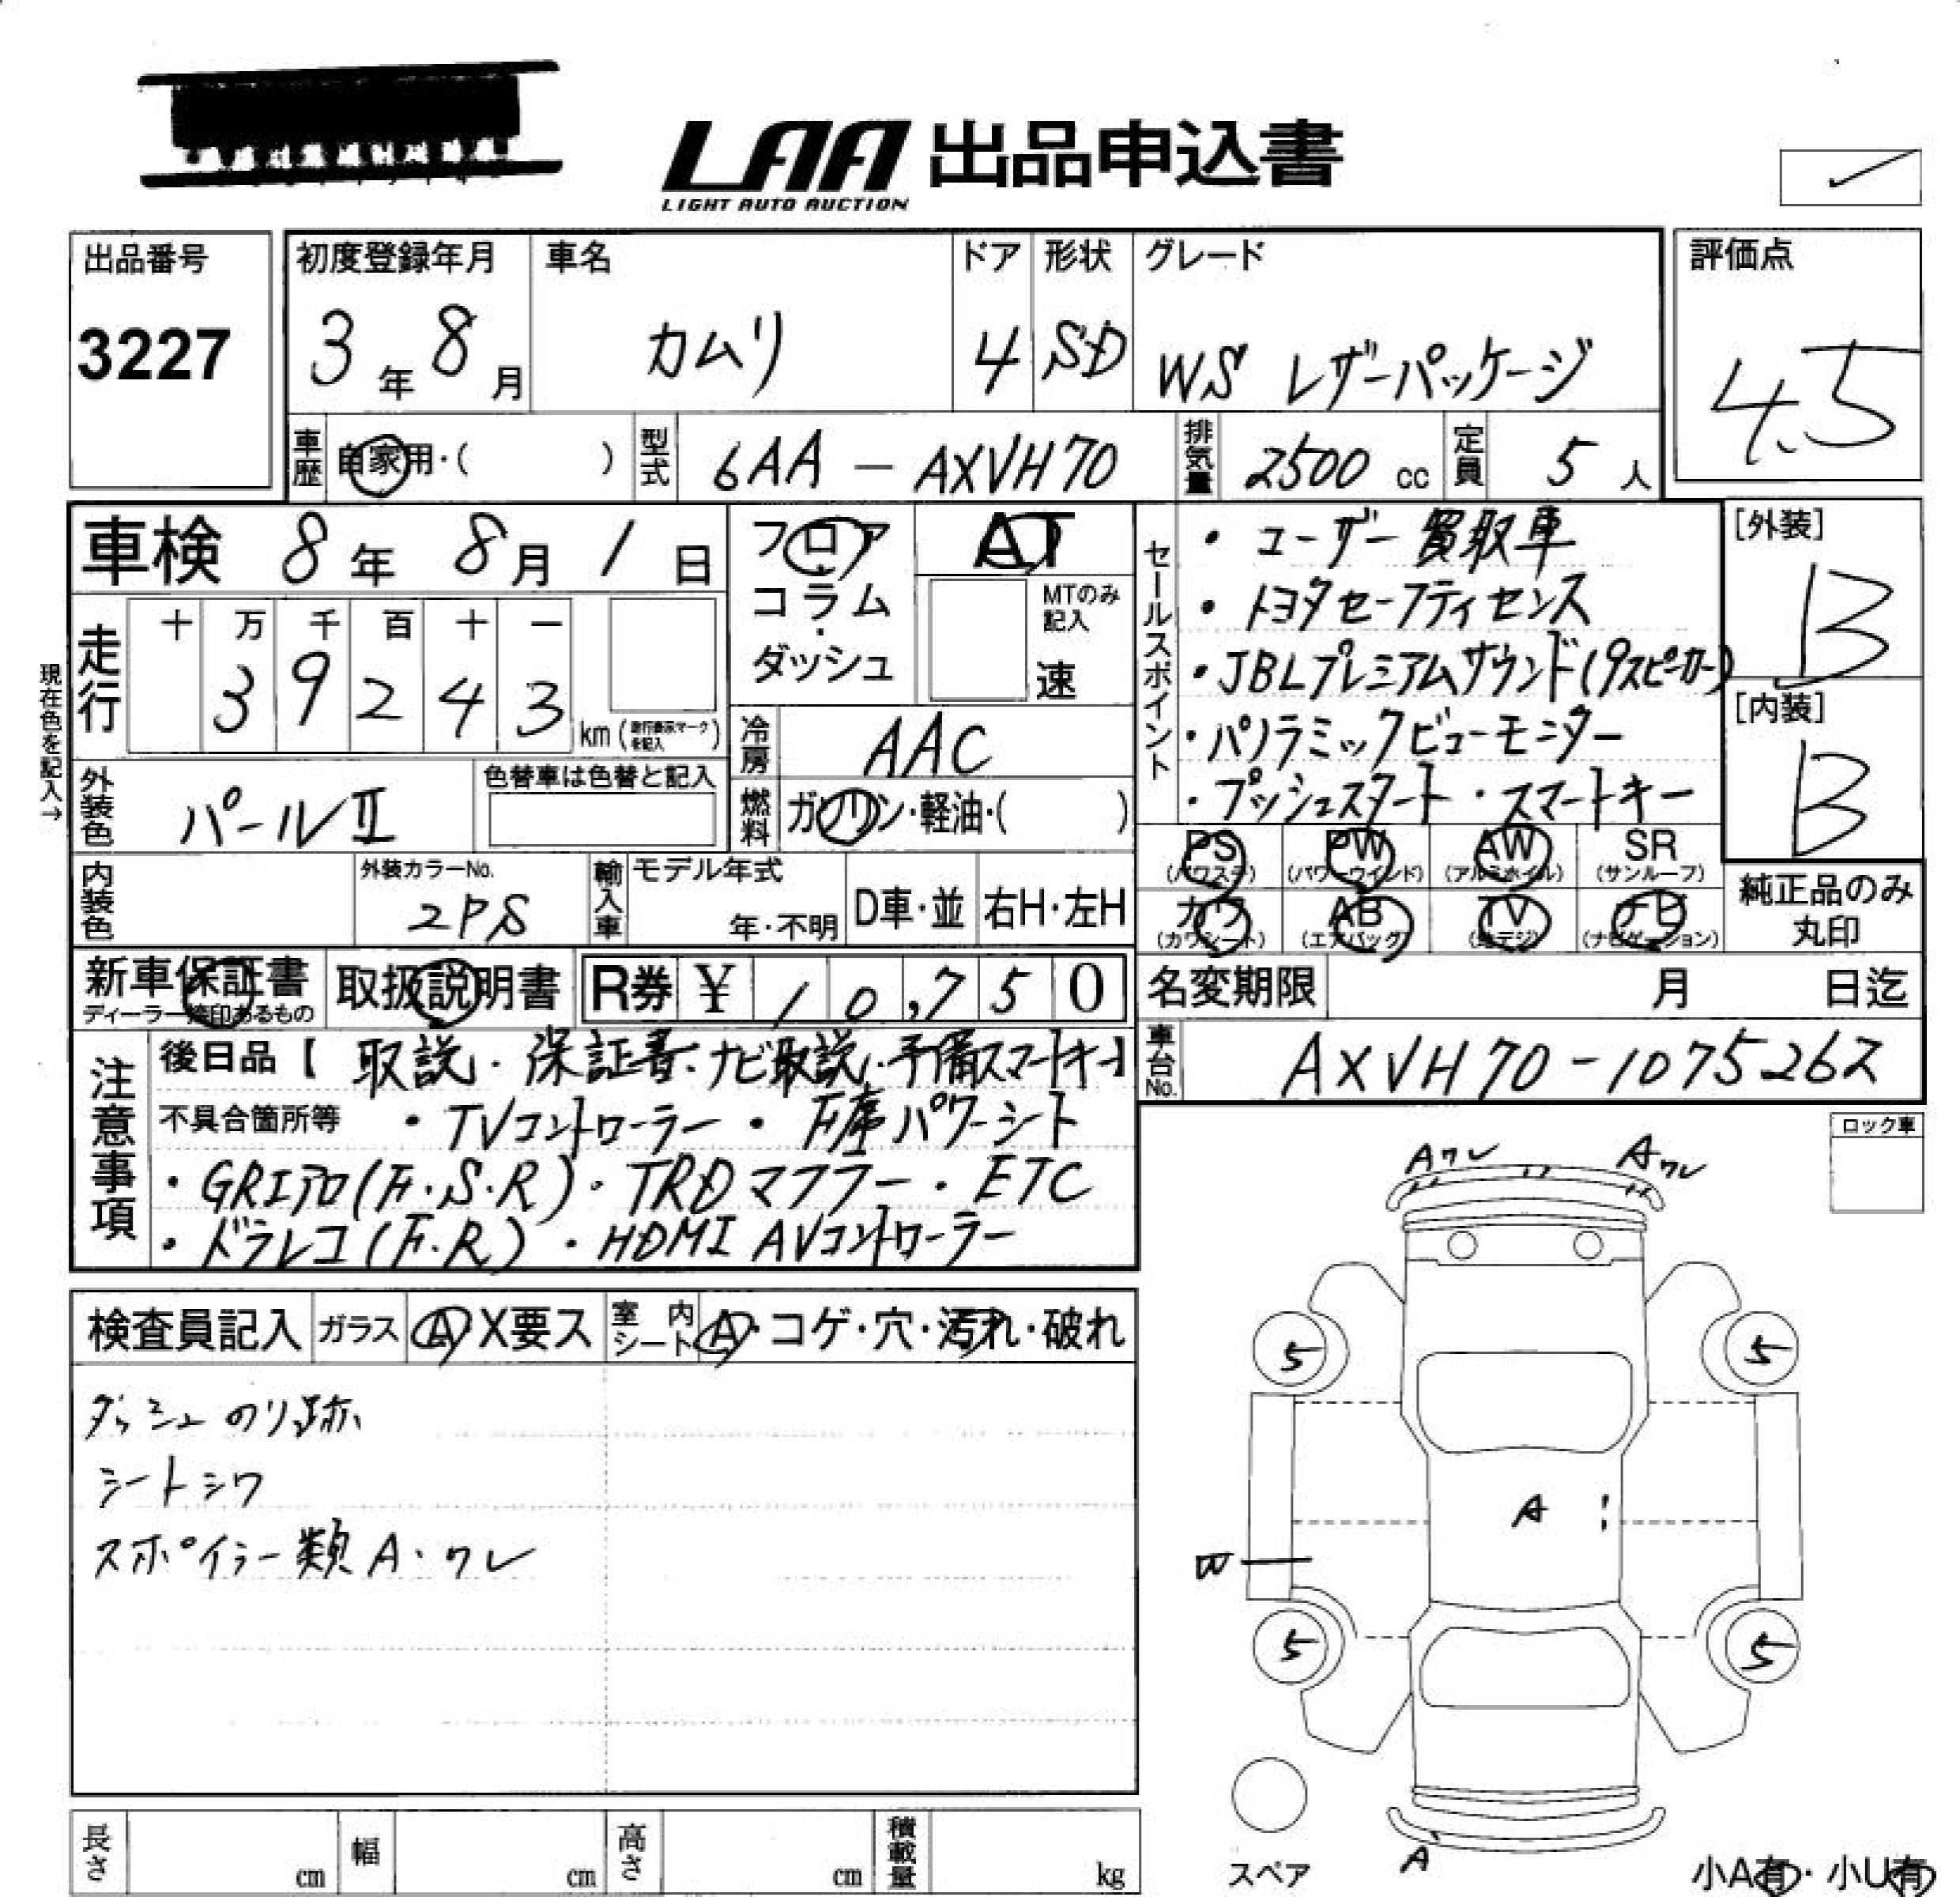 LAA 出品申込書
LIGHT AUTO AUCTION
出品番号
3227
初度登録年月
3年 8月
車名
カムリ
ドア
4
形状
SD
グレード
WS レザーパッケージ
評価点
4.5
車歴 自家用・( )
型式 6AA - AXVH70
排気量 2500 cc
定員 5 人
車検 8年 8月 1日
フロア
・
コラム
・
ダッシュ
AT
MTのみ記入
速
セールスポイント
・ユーザー買取車
・トヨタセーフティセンス
・JBLプレミアムサウンド(9スピーカー)
・パノラミックビューモニター
・プッシュスタート・スマートキー
[外装]
B
[内装]
B
現在色を記入→
走行
十 万 千 百 十 一
3 9 2 4 3 km (走行表示マークを記入)
冷房 AAC
外装色 パールⅡ
色替車は色替と記入
燃料 ガソリン・軽油・( )
内装色
外装カラーNo.
2PS
輸入車
モデル年式
年・不明
D車・並
右H・左H
PS (パワステ)
PW (パワーウインド)
AW (アルミホイル)
SR (サンルーフ)
カワ (カワシート)
AB (エアバック)
TV (地デジ)
ナビ (ナビゲーション)
純正品のみ
丸印
新車保証書
ディーラー捺印あるもの
取扱説明書
R券 ¥ 10,750
名変期限 月 日迄
車台No. AXVH70-1075262
注意事項
後日品【 取説・保証書・ナビ取説・予備スマートキー】
不具合箇所等 ・TVコントローラー・F席パワーシート
・GRエアロ(F.S.R)・TRDマフラー・ETC
・ドラレコ(F.R)・HDMI AVコントローラー
ロック車
Aワレ Aワレ
検査員記入 ガラス A・X要ス 室内シート A・コゲ・穴・汚れ・破れ
ダッシュのり跡
シートシワ
スポイラー類A・ワレ
5 5
A
W
5 5
A
スペア
小A有・小U有
長さ cm 幅 cm 高さ cm 積載量 kg